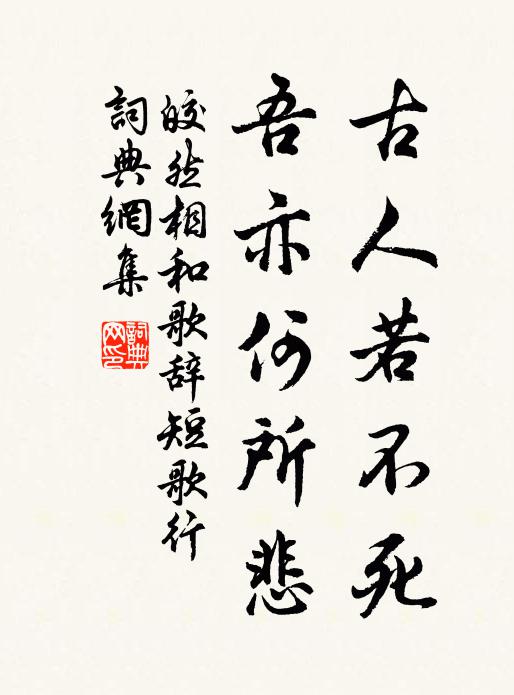 古人若不死
吾亦何所悲
皎然相和歌辞短歌行
詞典網集
詞典網印